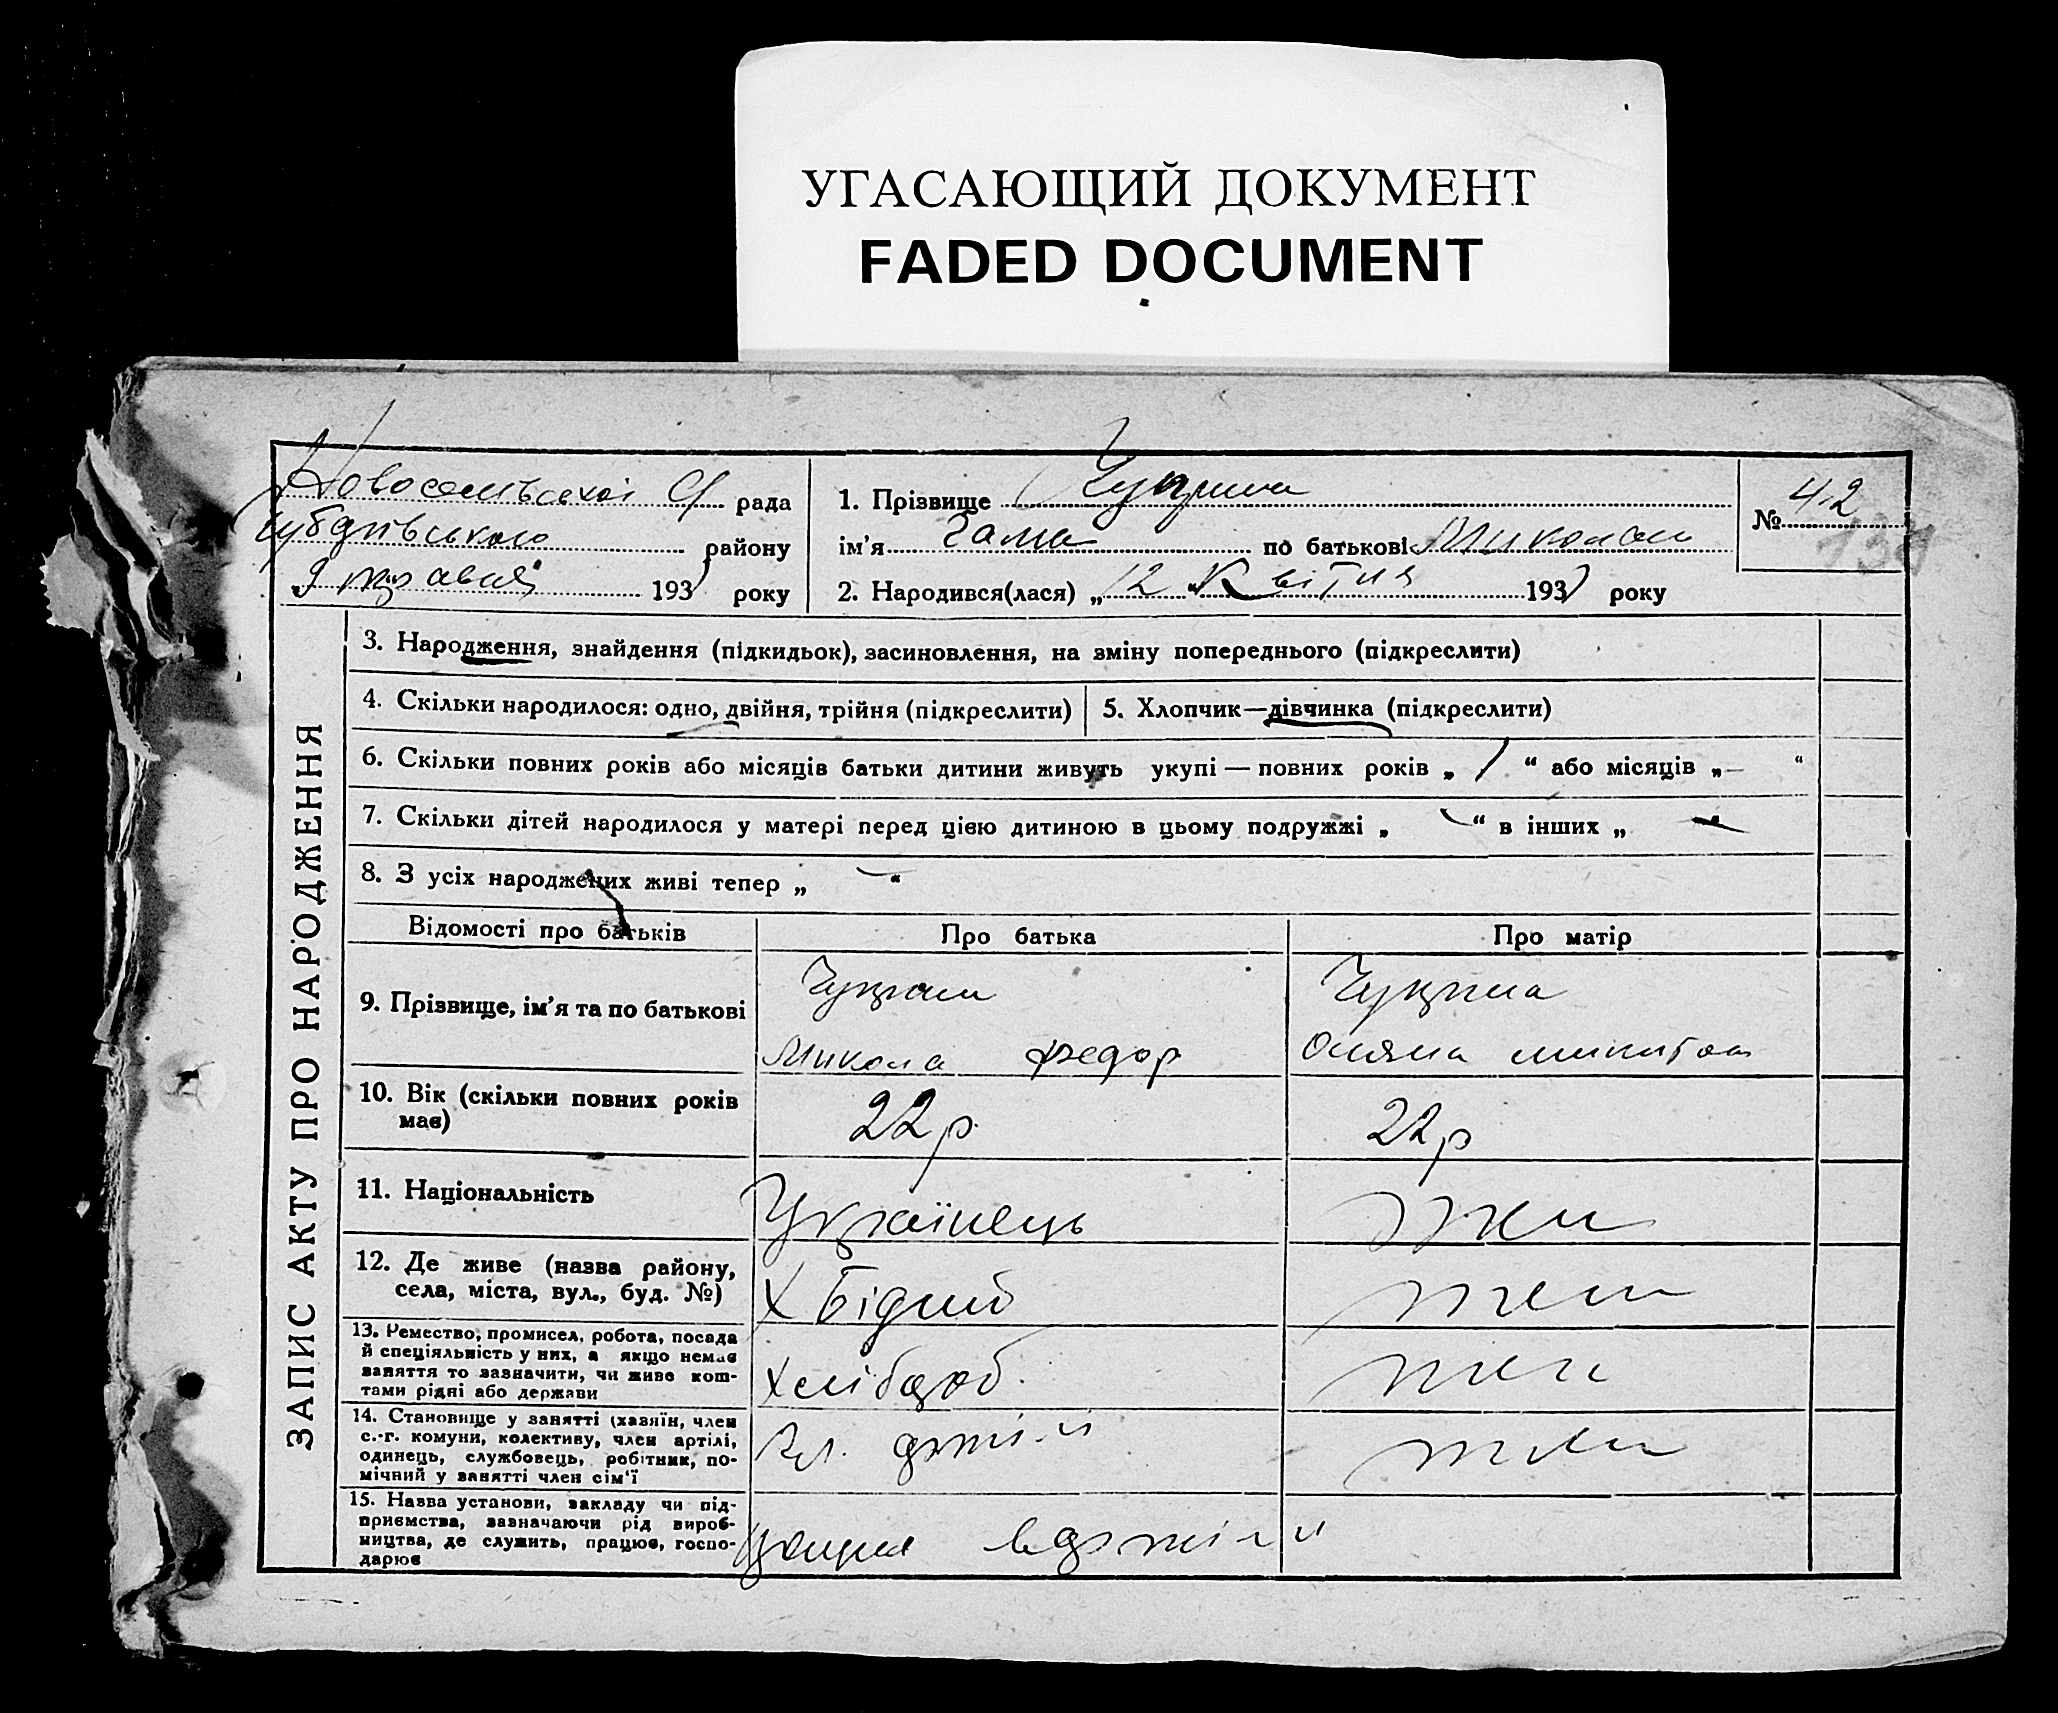 УГАСАЮЩИЙ ДОКУМЕНТ
FADED DOCUMENT
Новосельської с/ рада
району
9 травня 193 року
1. Прізвище
ім'я Гама по батькові Микол
2. Народився(лася) „12 “ Квітня 193 року
№ 42
131
ЗАПИС АКТУ ПРО НАРОДЖЕННЯ
3. Народження, знайдення (підкидьок), засиновлення, на зміну попереднього (підкреслити)
4. Скільки народилося: одно, двійня, трійня (підкреслити)
5. Хлопчик—дівчинка (підкреслити)
6. Скільки повних років або місяців батьки дитини живуть укупі — повних років „ 1 “ або місяців „ — “
7. Скільки дітей народилося у матері перед цією дитиною в цьому подружжі „ — “ в інших „ — “
8. З усіх народжених живі тепер „ — “
Відомості про батьків
Про батька
Про матір
9. Прізвище, ім'я та по батькові
Микола Федор
10. Вік (скільки повних років
має)
22 р
22 р
11. Національність
Українець
12. Де живе (назва району,
села, міста, вул., буд. №)
Х Бідний
13. Ремество, промисел, робота, посада
й спеціяльність у них, а якщо немає
заняття то зазначити, чи живе кош-
тами рідні або держави
Хлібороб
14. Становище у занятті (хазяїн, член
с.-г. комуни, колективу, член артілі,
одинець, службовець, робітник, по-
мічний у занятті член сім'ї
Чл. артілі
15. Назва установи, закладу чи під-
приємства, зазначаючи рід вироб-
ництва, де служить, працює, госпо-
дарює
Працює в артілі